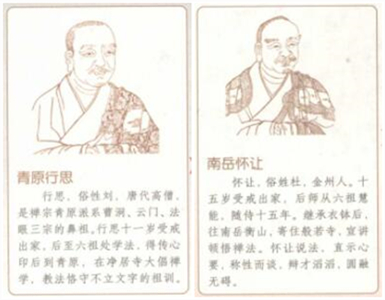 青原行思
行思，俗性刘，唐代高僧，
是禅宗青原派系曹洞、云门、法
眼三宗的鼻祖。行思十一岁受戒
出家，后至六祖处学法，得传心
印后到青原，在净居寺大倡禅
学，教法恪守不立文字的祖训。
南岳怀让
怀让，俗姓杜，金州人。十
五岁受戒出家，后师从六祖慧
能，随侍十五年。继承衣钵后，
往南岳衡山，寄住般若寺，宣讲
顿悟禅法。怀让说法，直示心
要，称性而谈，辩才滔滔，圆融
无碍。